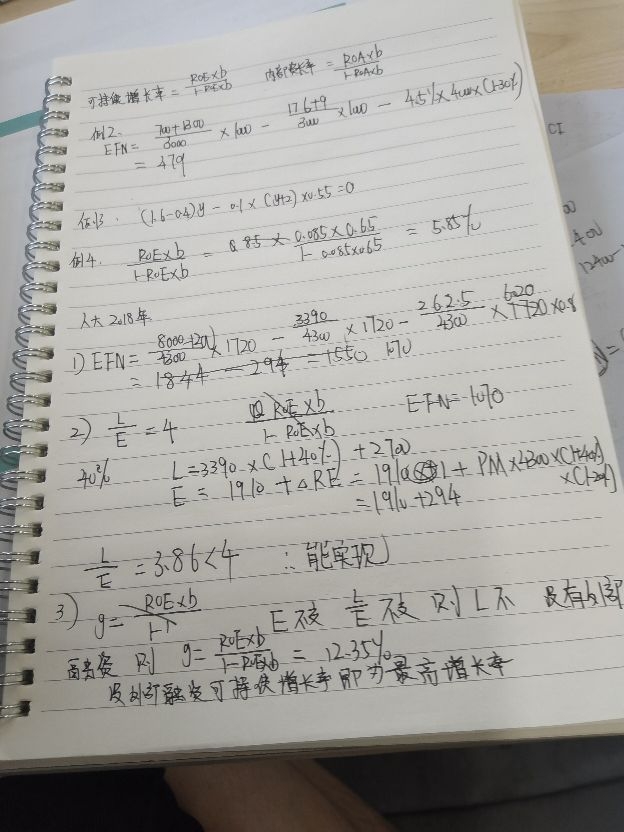 可持续增长率 = ROE×b / 1-ROE×b 内部增长率 = ROA×b / 1-ROA×b
例2. EFN = 700+1300 / 3000 × 1000 - 176+9 / 300 × 1000 - 4.5% × 4000 × (1-30%)
= 479
例3. (1.6-0.4)y - 0.1 × (y+2) × 0.55 = 0
例4. ROE×b / 1-ROE×b = 0.085×0.65 / 1-0.085×0.65 = 5.85%
人大 2018年
1) EFN = 8000+200 / 4300 × 1720 - 3390 / 4300 × 1720 - 262.5 / 4300 × 6020 × 0.8
= 1844 - 294 = 1550 1070
2) L / E = 4 ROE×b / 1-ROE×b EFN=1070
40% L = 3390 × (1+40%) + 2700
E = 1910 + △RE = 1910 + PM×4300×(1+40%) ×(1-20%)
= 1910+294
L / E = 3.86 < 4 ∴能实现
3) g = ROE×b / 1- E不变 L / E 不变 则 L不 没有外部
融资 则 g = ROE×b / 1-ROE×b = 12.35%
没外部融资可持续增长率即为最高增长率
CI